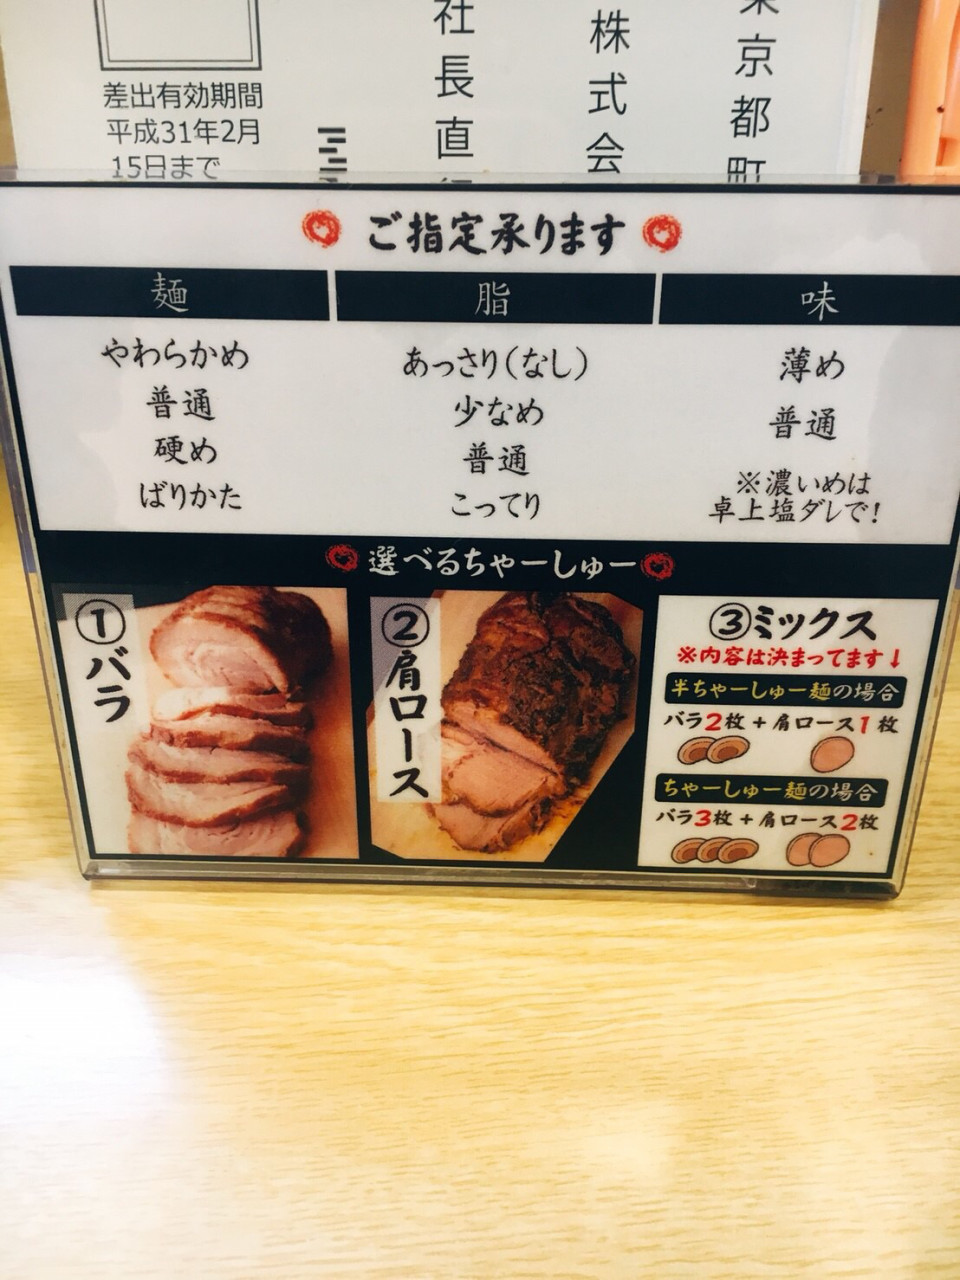 差出有効期間
平成31年2月
15日まで
社長直
株式会
東京都町
ご指定承ります
麺
やわらかめ
普通
硬め
ばりかた
脂
あっさり(なし)
少なめ
普通
こってり
味
薄め
普通
※濃いめは
卓上塩ダレで!
選べるちゃーしゅー
①バラ
②肩ロース
③ミックス
※内容は決まってます↓
半ちゃーしゅー麺の場合
バラ2枚+肩ロース1枚
ちゃーしゅー麺の場合
バラ3枚+肩ロース2枚